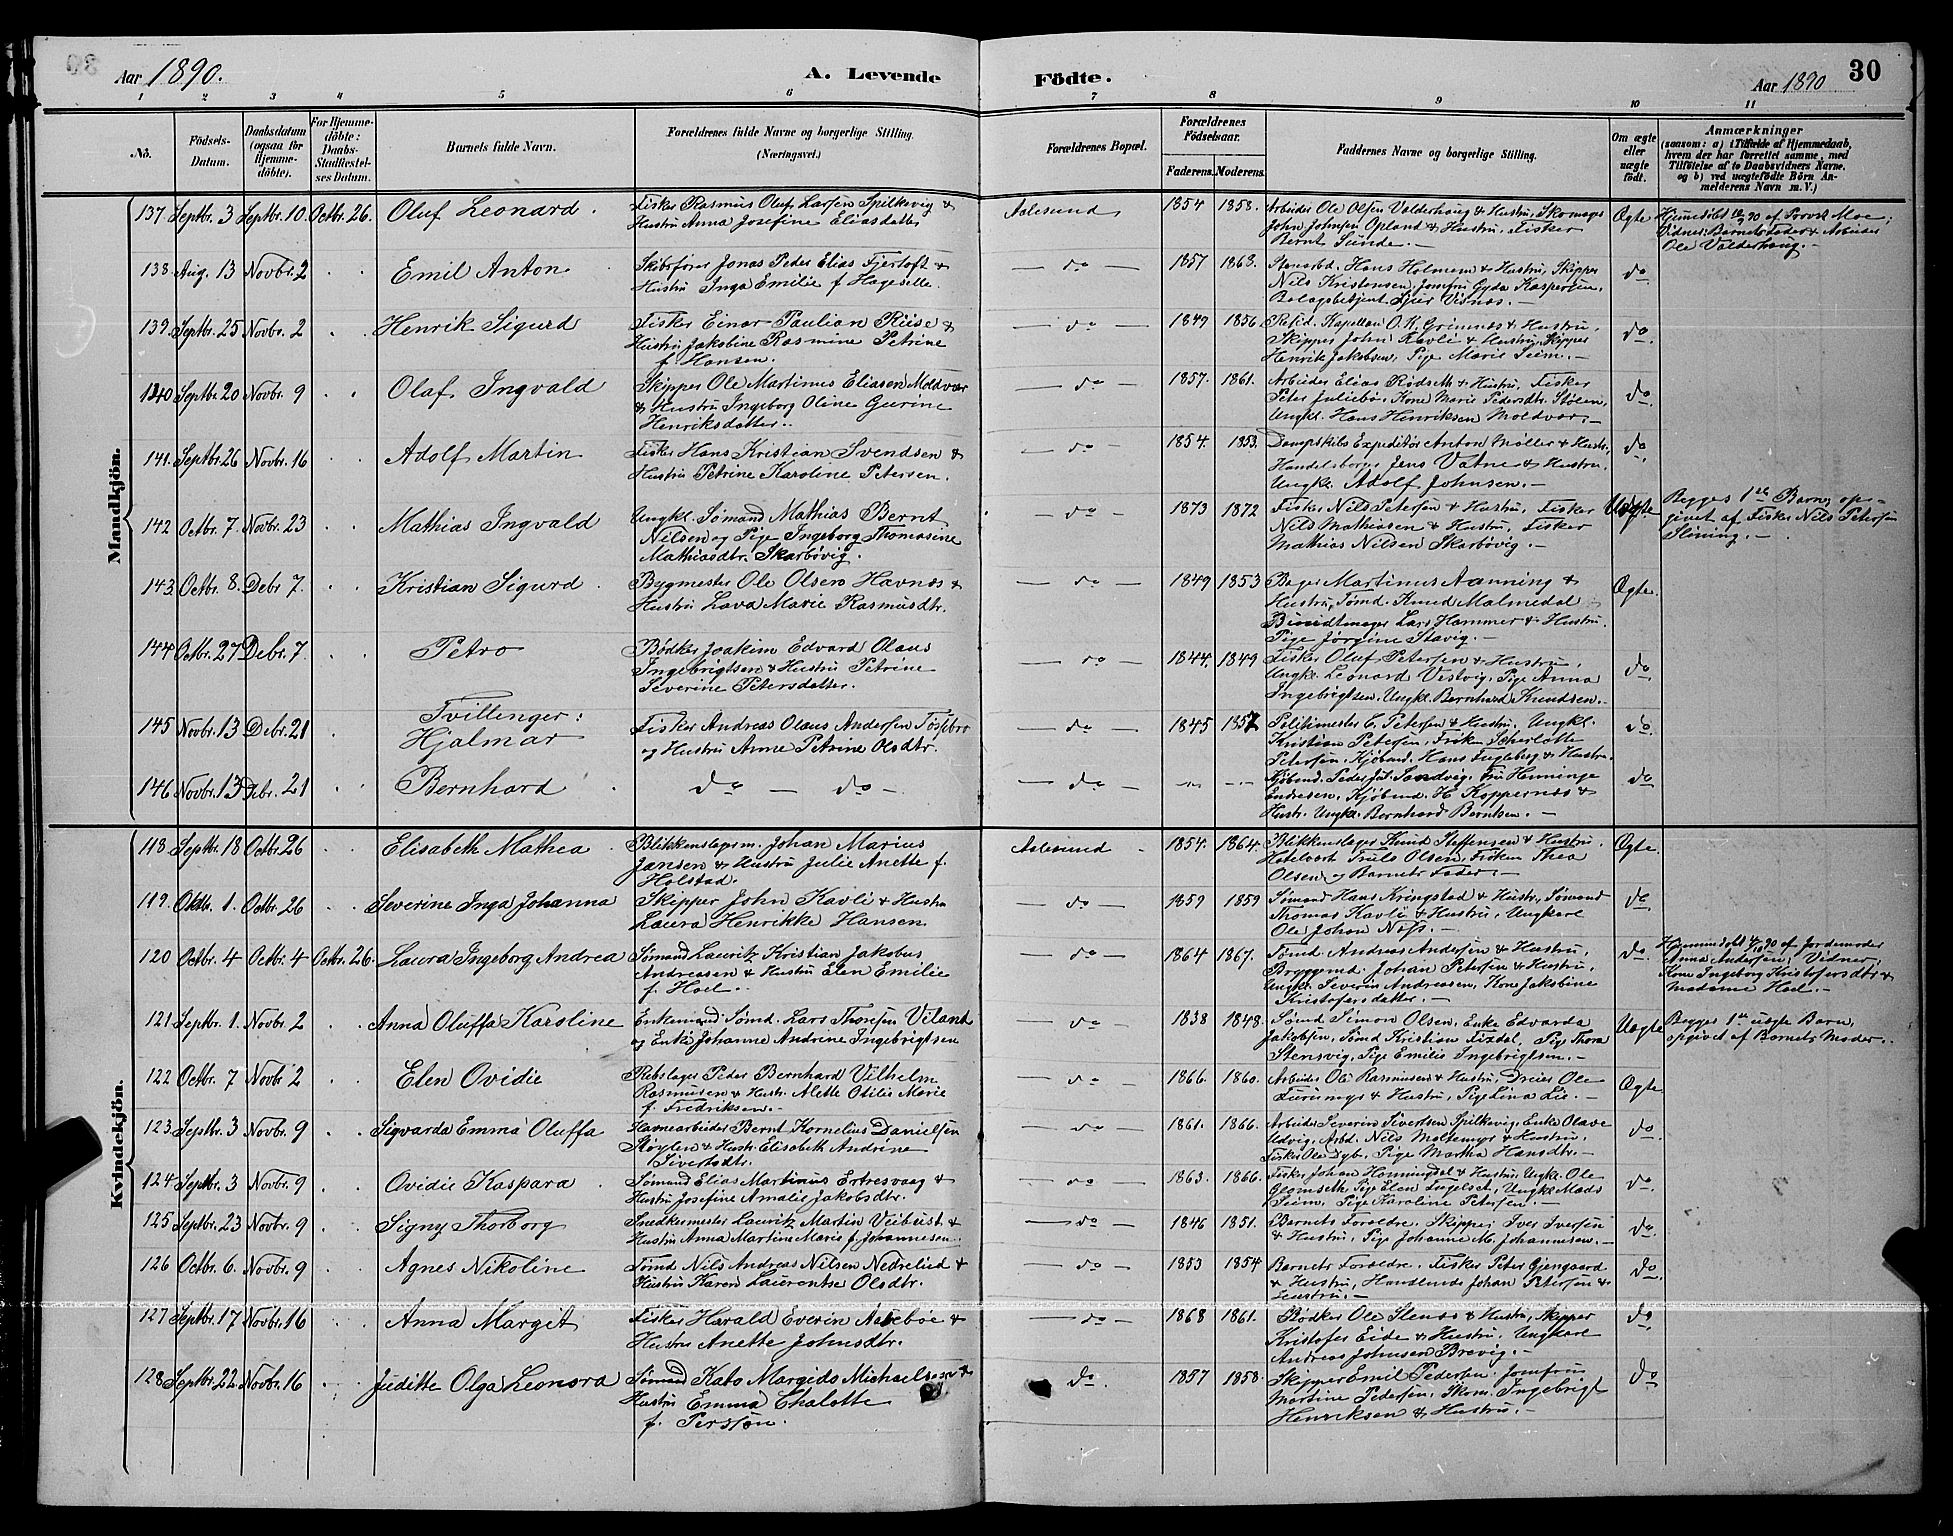 Aar 1890. A. Levende Födte. Aar 1890 30
1 2 3 4 5 6 7 8 9 10 11
No.
Födsels-Datum.
Daabsdatum (ogsaa for Hjemme-döbte).
For Hjemme-döbte: Daabs-Stadfiestel-ses Datum.
Barnets fulde Navn.
Forældrenes fulde Navne og borgerlige Stilling. (Næringsvei.)
Forældrenes Bopæl.
Forældrenes Födselsaar.
Faderens. Moderens.
Faddernes Navne og borgerlige Stilling.
Om ægte eller uægte födt.
Anmærkninger
(saasom: a) i Tilfælde af Hjemmedaab,
hvem der har forrettet samme, med
Tilföielse af to Daabsvidners Navne,
og b) ved uægtefödte Börn An-
melderens Navn m. V.)
Mandkjön.
137. Septbr. 3 Septbr. 10. Octbr. 26. Oluf Leonard.
Fisker Rasmus Oluf Larsen Spilkevig &
Hustru Anna Josefine Eliasdatter
Aalesund 1854 1858.
Arbeider Ole Olsen Valderhaug & Hustru, Skomager
John Johnsen Opland & Hustru, Fisker
Bernt Sunde. —
Ægte
Hjemmedöbt 10/9 90 af Provst Moe;
Vidner: Barnets Fader & Arbeider
Ole Valderhaug. —
138. Aug. 13 Novbr. 2 Emil Anton
Skibsförer Jonas Peder Elias Fjertoft &
Hustru Inga Emilie f. Hageselle.
— do — 1857 1863.
Hans Holmem & Hustru, Skipper
Nils Kristensen, Jomfru Gyda Kaspersen,
Bolagsbetjent Sjur Visnæs. —
do
139. Septbr. 25 Novbr. 2 Henrik Sigurd
Fisker Einar Paulian Riise &
Hustru Jakobine Rasmine Petrine
f. Hansen.
— do — 1849 1856.
Resid. Kapellan O. K. Grimnæs & Hustru,
Skipper John Kavli & Hustru, Skipper
Henrik Jakobsen, Pige Marie Seim. —
do
140 Septbr. 20 Novbr. 9 Olaf Ingvald
Skipper Ole Martinus Eliasen Moldvær
& Hustru Ingeborg Oline Gurine
Henriksdatter.
— do — 1857. 1861.
Arbeider Elias Rødseth & Hustru, Fisker
Peter Juliebø, Kone Marie Pedersdtr. Stølen,
Ungkl. Hans Henriksen Moldvær. —
do
141. Septbr. 26 Novbr. 16 Adolf Martin
Fisker Hans Kristian Svendsen &
Hustru Petrine Karoline Petersen.
— do — 1854. 1853.
Dampskibs Expeditör Anton Møller & Hustr.
Handelsborger Jens Vatne & Hustru,
Ungkl. Adolf Johnsen. —
do
142 Octbr. 7. Novbr. 23 Mathias Ingvald
Ungkl. Sömand Mathias Bernt
Nilsen og Pige Ingeborg Thomasine
Mathiasdtr. Skarbøvig.
— do — 1873 1872
Fisker Nils Petersen & Hustru, Fisker
Nils Mathiasen & Hustru, Fisker
Mathias Nilsen Skarbøvig. —
Uægte
Begges 1ste Barn, op-
givet af Fisker Nils Petersen
Slöning. —
143. Octbr. 8. Debr 7. Kristian Sigurd
Bygmester Ole Olsen Havnæs &
Hustru Lava Marie Rasmusdtr.
— do — 1849 1853
Bager Martinus Aanning &
Hustru, Tömd. Knud Malmedal
Lars Hammer & Hustru.
Pige Jørgine Stavig. —
Ægte.
144 Octbr. 27 Debr. 7. Petro
Bødker Joakim Edvard Olaus
Ingebrigtsen & Hustru Petrine
Severine Petersdatter.
— do — 1844. 1849
Fisker Oluf Petersen & Hustru,
Ungkl. Leonard Vestvig, Pige Anna
Ingebrigtsen, Ungkl. Bernhard Knudsen. —
do
Tvillinger:
145 Novbr. 13 Debr. 21 Hjalmar
Fisker Andreas Olaus Andersen Tøsebro
og Hustru Anne Petrine Olsdtr.
— do — 1845 1857
Politimester C. Petersen & Hustru, Ungkl.
Kristian Petersen, Frøken Scharlotte
Petersen, Kjöbmd. Hans Fugleberg & Hustru.
do
146 Novbr. 13 Debr. 21 Bernhard
do — do —
— do —
Kjöbmd. Peder Jul. Sandvig, Fru Henninge
Endresen, Kjöbmd. H. Koppernæs &
Hustr. Ungkl. Bernhard Berntsen. —
do
Kvindekjön.
118 Septbr. 18 Octbr. 26 Elisabeth Mathea
Blikkenslagerm. Johan Marius
Jansen & Hustru Julie Anette f.
Holstad.
Aalesund 1854. 1864.
Blikkenslager Knud Steffensen & Hustru.
Hotelvært Truls Olsen, Frøken Thea
Olsen og Barnets Fader. —
Ægte.
119. Oktbr. 1. Octbr. 26 Severine Inga Johanna
Skipper John Kavli & Hustru
Laura Henrikke Hansen
— do — 1859 1859
Sömand Hans Kringstad & Hustr., Sömand
Thomas Kavli & Hustru, Ungkarl
Ole Johan Næss. —
do
120 Octbr. 4 Octbr. 4 Octbr. 26. Laura Ingeborg Andrea
Sömand Lauritz Kristian Jakobus
Andreasen & Hustru Elen Emilie
f. Hoel.
— do — 1864 1867.
Tømd. Andreas Andersen & Hustru,
Bryggemd. Johan Petersen & Hustru,
Ungkl. Severin Andreasen, Kone Jakobine
Kristofersdatter. —
do
Hjemmedöbt 4/10 90 af Jordemoder
Anna Andersen; Vidner:
Kone Ingeborg Kristofersdtr &
Madame Hoel. —
121 Septbr. 1. Novbr. 2 Anna Oluffa Karoline
Enkemand Sømd. Lars Thoresen Viland
og Enke Johanne Andrine Ingebrigtsen
— do — 1838 1848.
Sømd Simon Olsen, Enke Edvarda
Jakobsen, Sømd Kristian Fixdal, Pige Thora
Stensvig, Pige Emilie Ingebrigtsen. —
Uægte
Begges 1ste uægte Barn,
opgivet af Barnets Moder.
122 Octbr. 7 Novbr 2 Elen Ovidie
Rebslager Peder Bernhard Vilhelm
Rasmusen & Hustr. Alette Otilie Marie
f. Fredriksen. —
— do — 1866. 1860.
Arbeider Ole Rasmusen & Hustru, Dreier Ole
Furumyr & Hustru, Pige Lina Lie. —
Ægte
123. Septbr. 3 Novbr. 9 Sigvarda Emma Oluffa
Havnearbeider Bernt Kornelius Danielsen
Røylen & Hustr. Elisabeth Andrine
Sivertsdtr.
— do — 1861. 1866.
Arbeider Severin Sivertsen Spilkevig, Enke Olave
Udvig, Arbd. Nils Moltemyr & Hustru,
Fisker Ole Dyb, Pige Martha Hansdtr. —
do
124 Septbr. 3 Novbr. 9 Ovidie Kaspara
Sömand Elias Martinus Ertresvaag &
Hustru Josefine Amalie Jakobsdtr.
— do — 1863. 1866.
Fisker Johan Honningdal & Hustru, Ungkl. Ole
Glomseth, Pige Elen Fugelset, Ungkl. Mads
Seim, Pige Karoline Petersen. —
do
125 Septbr. 23 Novbr. 9 Signy Thorborg
Snedkermester Lauritz Martin Veibust &
Hustru Anna Martine Marie f. Johannesen.
— do — 1846 1851.
Barnets Forældre, Skipper Iver Iversen
& Hustru, Pige Johanne M. Johannesen. —
do
126 Octbr. 6. Novbr. 9 Agnes Nikoline
Tømd Nils Andreas Nilsen Nedrelid &
Hustru Karen Laurentse Olsdtr.
— do — 1853 1854
Barnets Forældre, Fisker Peter Gjengaard
& Hustru, Handlende Johan Petersen &
Hustru. —
do
127 Septbr. 17 Novbr. 16 Anna Margit
Fisker Harald Everin Aarebøe &
Hustru Anette Johnsdtr.
— do — 1868 1861.
Bødker Ole Stenæs & Hustru, Skipper
Kristofer Eide & Hustru, Ungkarl
Andreas Johnsen Brevig. —
do
128 Septbr. 22 Novbr. 16 Juditte Olga Leonora
Sömand Kato Margido Michaelsen &
Hustru Emma Chalotte
f. Persson.
do. 1857 1858.
Skipper Emil Pedersen, Jomfru
Martine Pedersen, Skom. Ingebrigt
Henriksen & Hustru. —
do